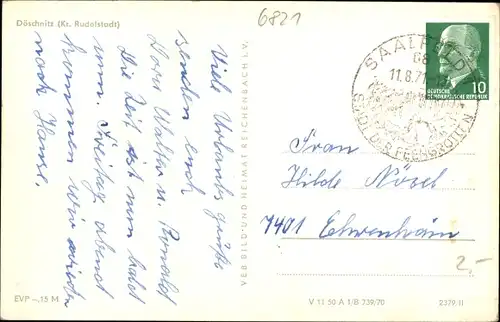 Döschnitz (Kr. Rudolstadt)
6821
Viele Urlaubsgrüße
senden euch
Dora Walter u. Ronald
Die Zeit ist nun bald
um. Freitag abend
kommen wir wieder
nach Hause.
VEB BILD UND HEIMAT REICHENBACH I. V.
SAALFELD
68
11.8.71
STADT DER FEENGROTTEN
10
DEUTSCHE
DEMOKRATISCHE REPUBLIK
Frau
Hilde Nösel
7401 Ehrenhain
2,-
EVP –.15 M
V 11 50 A 1/B 239/70
2379/II